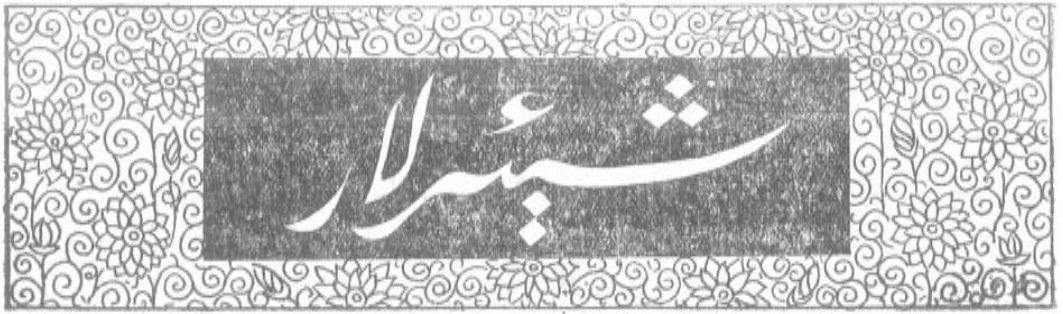 شېئىرلار